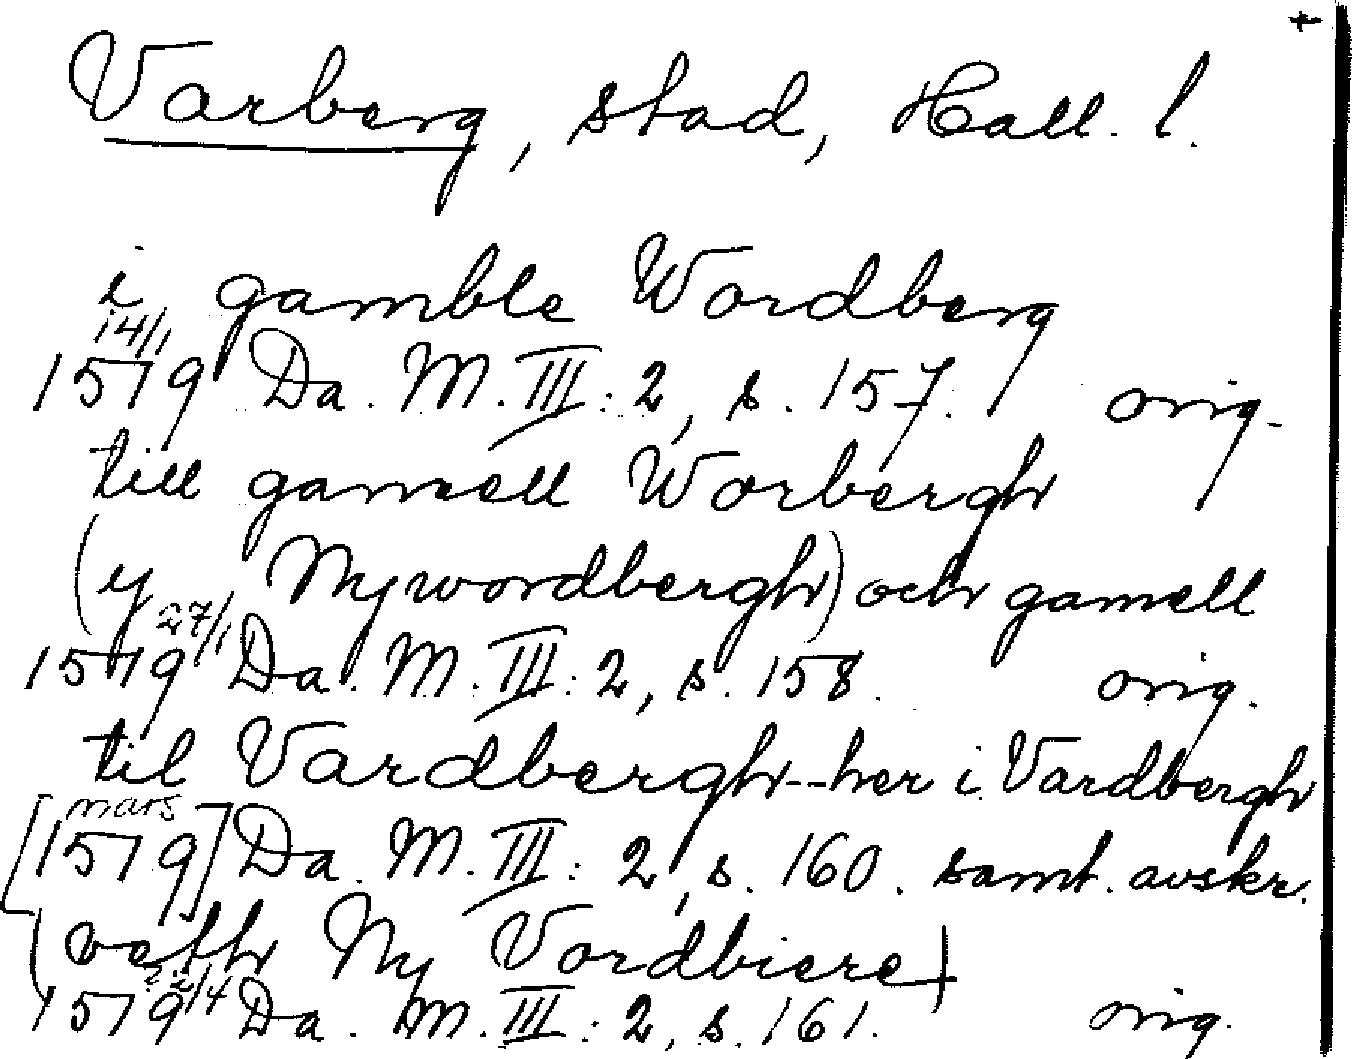 +
Varberg, stad, Hall. l.
i gamble Wordberg
14/1
1579 Da. M. III: 2, s. 157. orig.
till gamell Worbergh
(y Nywordbergh) och gamell
27/1
1579 Da. M. III: 2, s. 158. orig.
til Vardbergh--her i Vardbergh
mars
[1579] Da. M. III: 2, s. 160. samt. avskr.
(veth Ny Vordbiere)
22/4
1579 Da. M. III: 2, s. 161. orig.